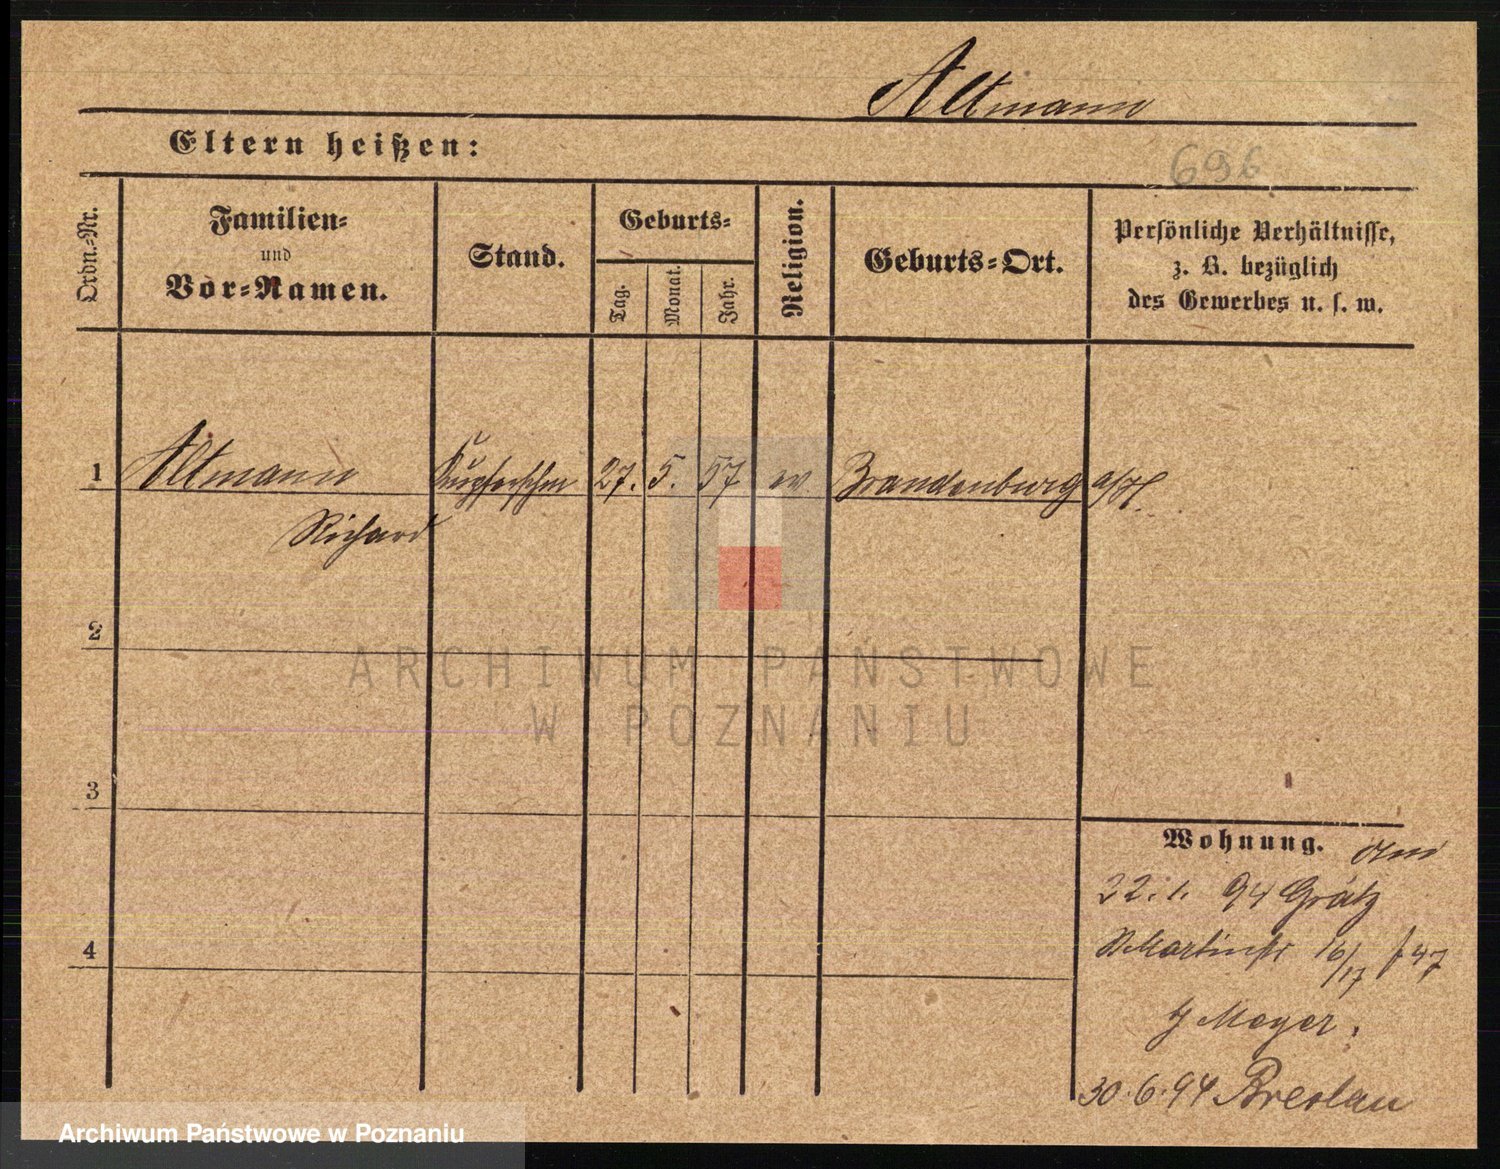 Altmann
Eltern heißen:
696
Ordn.-Nr.
Familien-
und
Vor-Namen.
Stand.
Geburts-
Tag.
Monat.
Jahr.
Religion.
Geburts-Ort.
Persönliche Verhältnisse,
z. B. bezüglich
des Gewerbes u. s. w.
1 Altmann Kupferschm 27. 5. 57 ev. Brandenburg a/H.
Richard
2
ARCHIWUM PAŃSTWOWE
W POZNANIU
3
Wohnung.
22. 1. 94 Grätz
Martinstr 16/17 47
Meyer.
4
30.6.94 Breslau
Archiwum Państwowe w Poznaniu